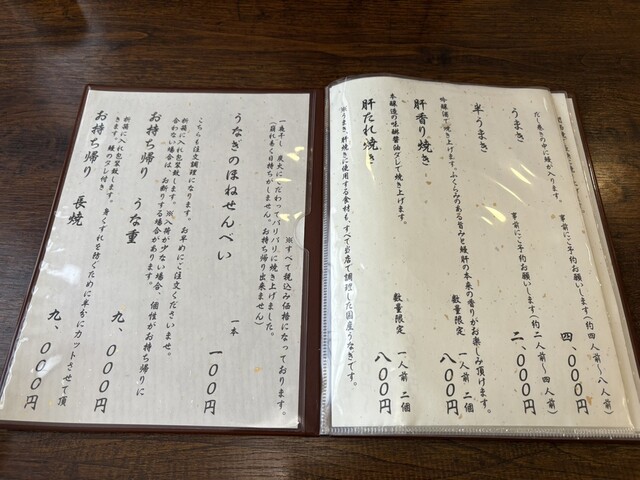 だし巻きの中に鰻が入ります。
うまき
事前にご予約お願いします(約四人前～八人前)
四、000円
半うまき
事前にご予約お願いします(約二人前～四人前)
二、000円
吟醸酒で焼き上げます。ふくらみのある旨みと鰻肝の本来の香りがお楽しみ頂けます。
肝香り焼き
数量限定 一人前 二個
八00円
本醸造の味醂醤油ダレで焼き上げます。
肝たれ焼き
数量限定 一人前 二個
八00円
※うまき、肝焼きに使用する食材も、すべて当店で調理した国産うなぎです。
※すべて税込み価格になっております。
一夜干し、炭火にこだわってパリパリに焼き上げました。
(崩れ易く日持ちがしません。お持ち帰り出来ません)
うなぎのほねせんべい
一本
一00円
こちらも注文調理になります。お早めにご注文くださいませ。
折箱に入れ包装致します。※入荷が少ない場合。個性がお持ち帰りに
合わない場合は、お断りする場合があります。
お持ち帰り うな重
九、000円
折箱に入れ包装致します。身くずれを防ぐために半分にカットさせて頂
きます。鰻のタレ付き
お持ち帰り 長焼
九、000円